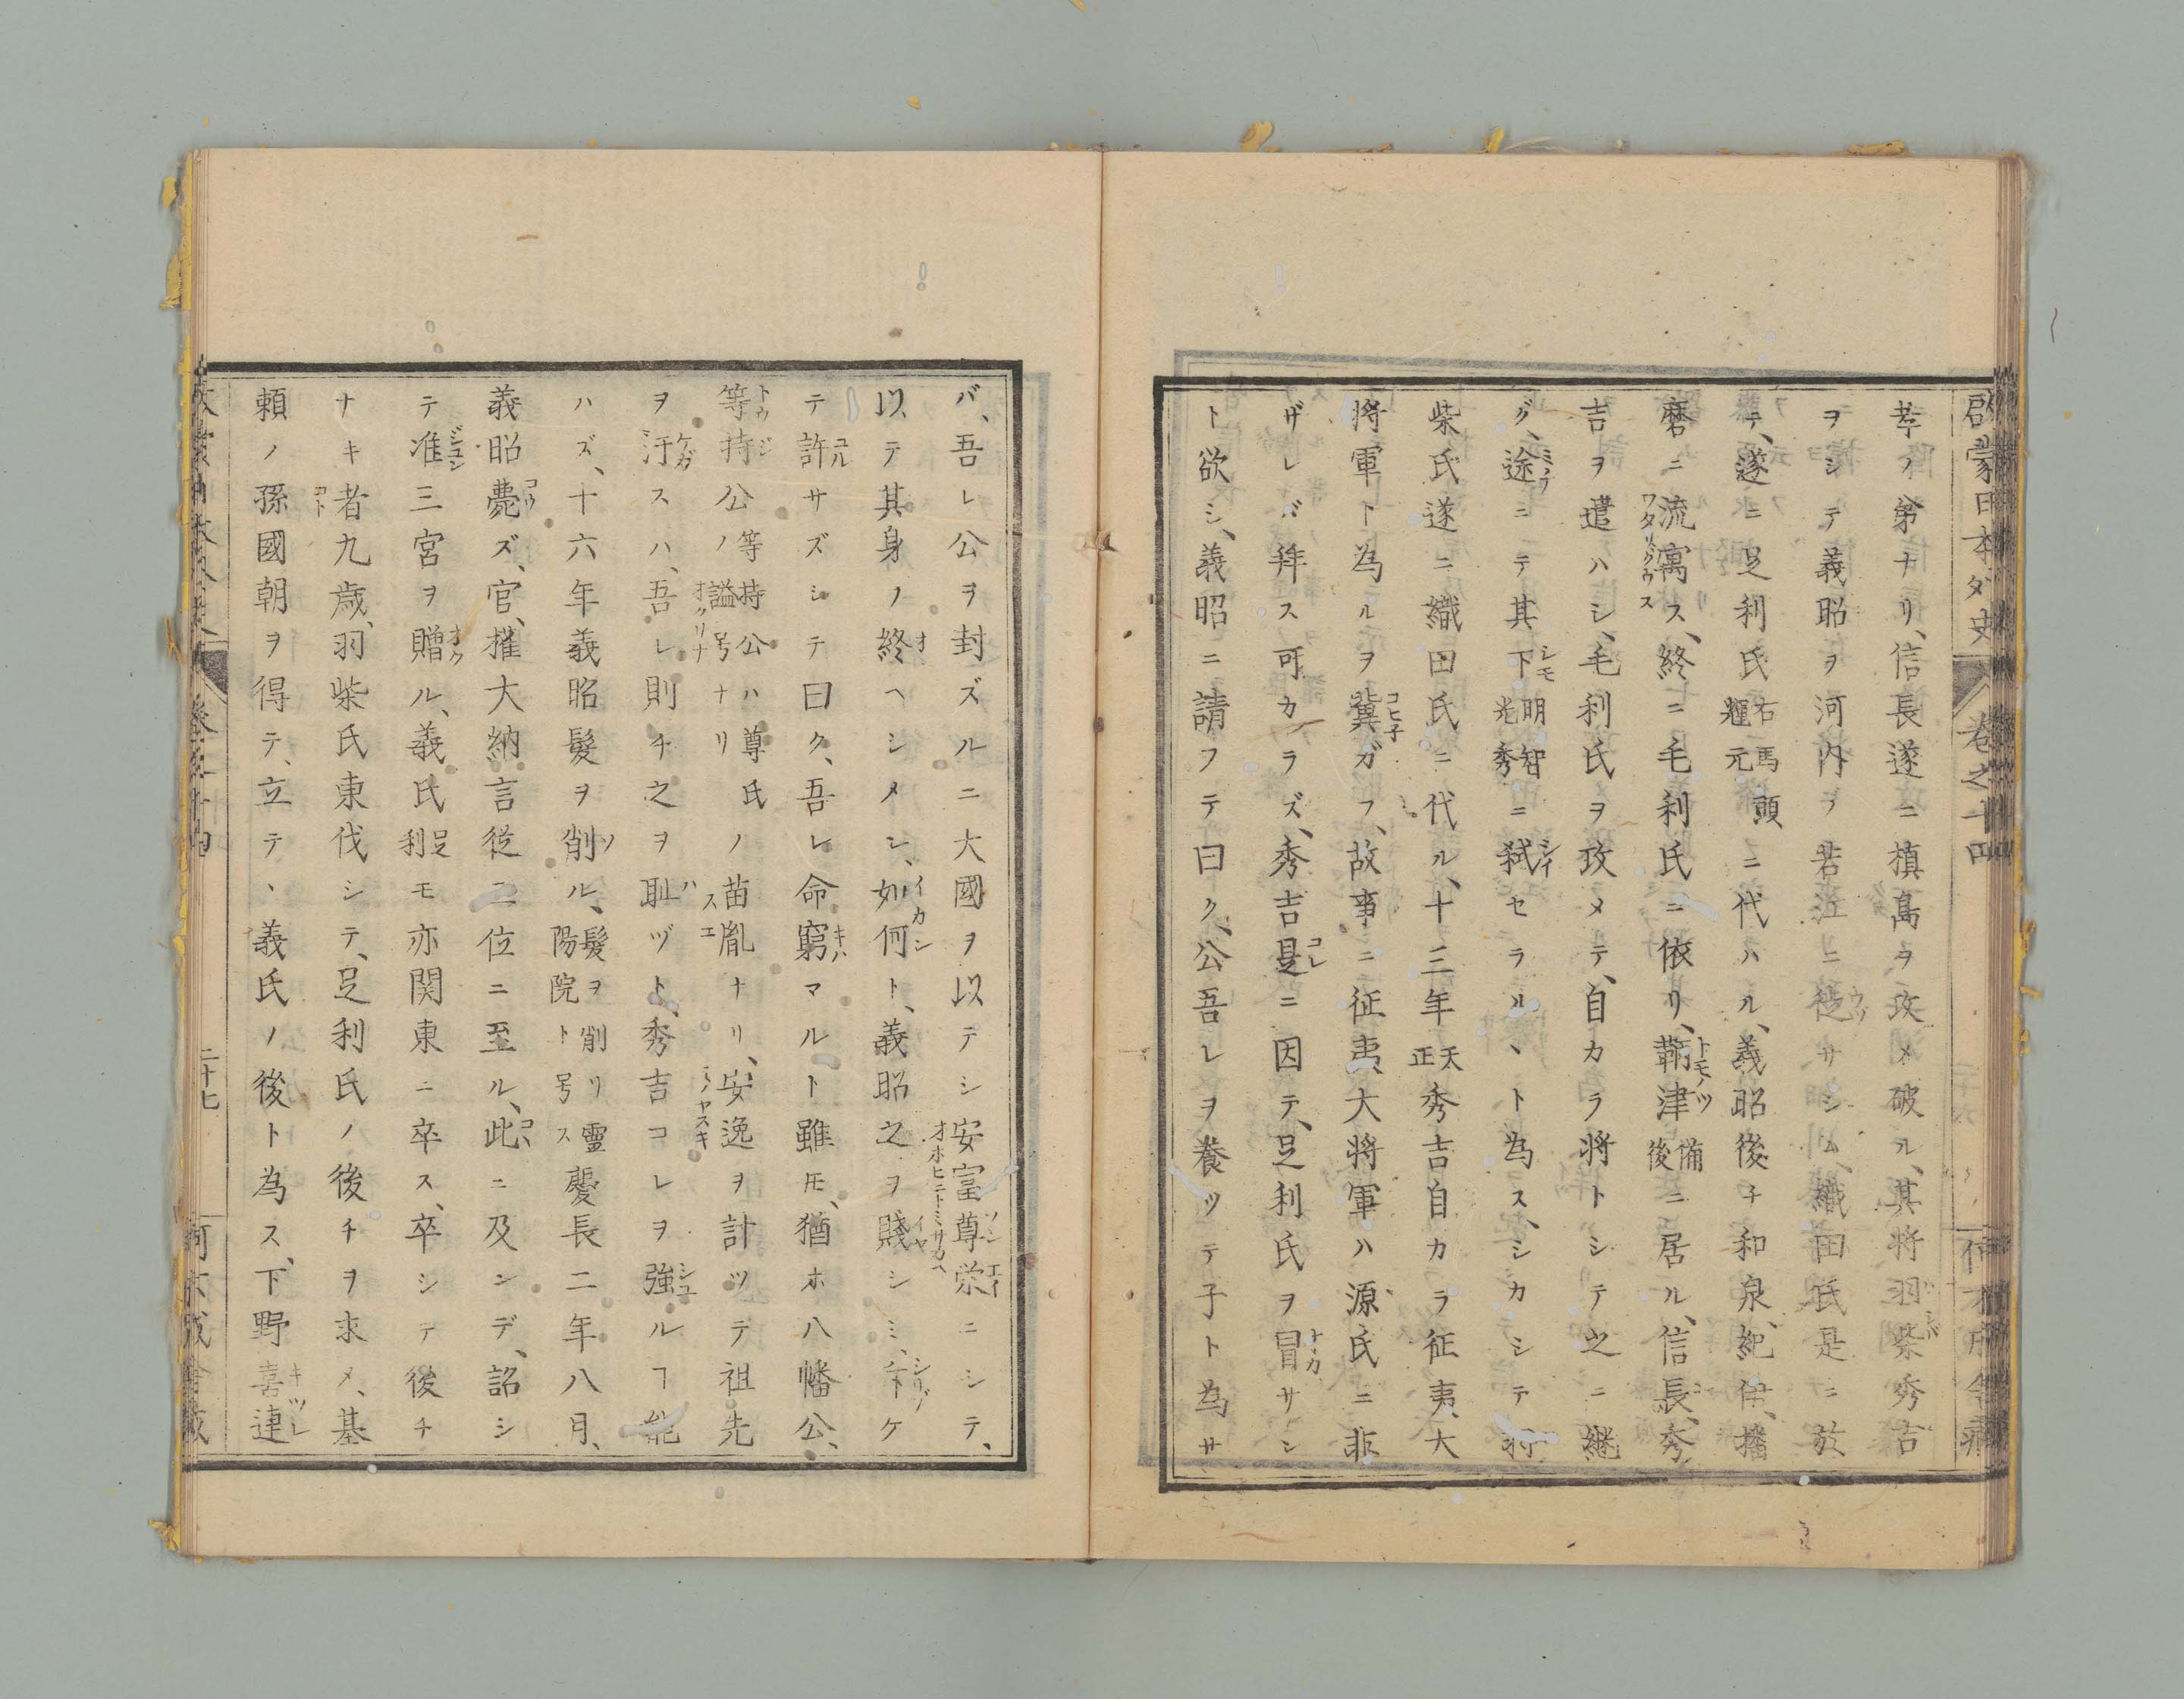 啓蒙日本外史 巻之十四
孝ノ弟ナリ、信長遂ニ槙島ヲ攻メ破ル、其将羽柴秀吉
ヲシテ義昭ヲ河内ノ若江ニ徙サシム、織田氏是ニ於
テ、遂ニ足利氏右馬頭ニ代ハル、義昭後チ和泉、紀伊、播
磨ニ流寓ス、終ニ毛利氏ニ依リ、鞆津備後ニ居ル、信長、秀
吉ヲ遣ハシ、毛利氏ヲ攻メテ、自カラ将トシテ之ニ継
グ、途ニテ其下明智光秀ニ弑セラル、ト為ス、シカシテ羽
柴氏遂ニ織田氏ニ代ル、十三年天正秀吉自カラ征夷大
将軍ト為ルヲ冀ガフ、故事ニ征夷大将軍ハ源氏ニ非
ザレバ拜ス可カラズ、秀吉是ニ因テ、足利氏ヲ冒サン
ト欲シ、義昭ニ請フテ曰ク、公吾レヲ養ッテ子ト為サ
バ、吾レ公ヲ封ズルニ大國ヲ以テシ安富尊栄ニシテ、
以テ其身ノ終ヘシメン、如何ト、義昭之ヲ賤シミ、卻ケ
テ許サズシテ曰ク、吾レ命窮マルト雖モ、猶ホ八幡公、
等持公等持公ハ尊氏ノ謚号ナリノ苗胤ナリ、安逸ヲ計ッテ祖先
ヲ汚スハ、吾レ則チ之ヲ耻ヅト、秀吉コレヲ強ルヿ能
ハズ、十六年義昭髮ヲ削ル、髮ヲ削リ靈陽院ト号ス慶長二年八月、
義昭薨ズ、官、権大納言従二位ニ至ル、此ニ及ンデ、詔シ
テ准三宮ヲ贈ル、義氏足利モ亦関東ニ卒ス、卒シテ後チ
ナキ者九歳、羽柴氏東伐シテ、足利氏ノ後チヲ求メ、基
頼ノ孫國朝ヲ得テ、立テヽ義氏ノ後ト為ス、下野喜連
二十七